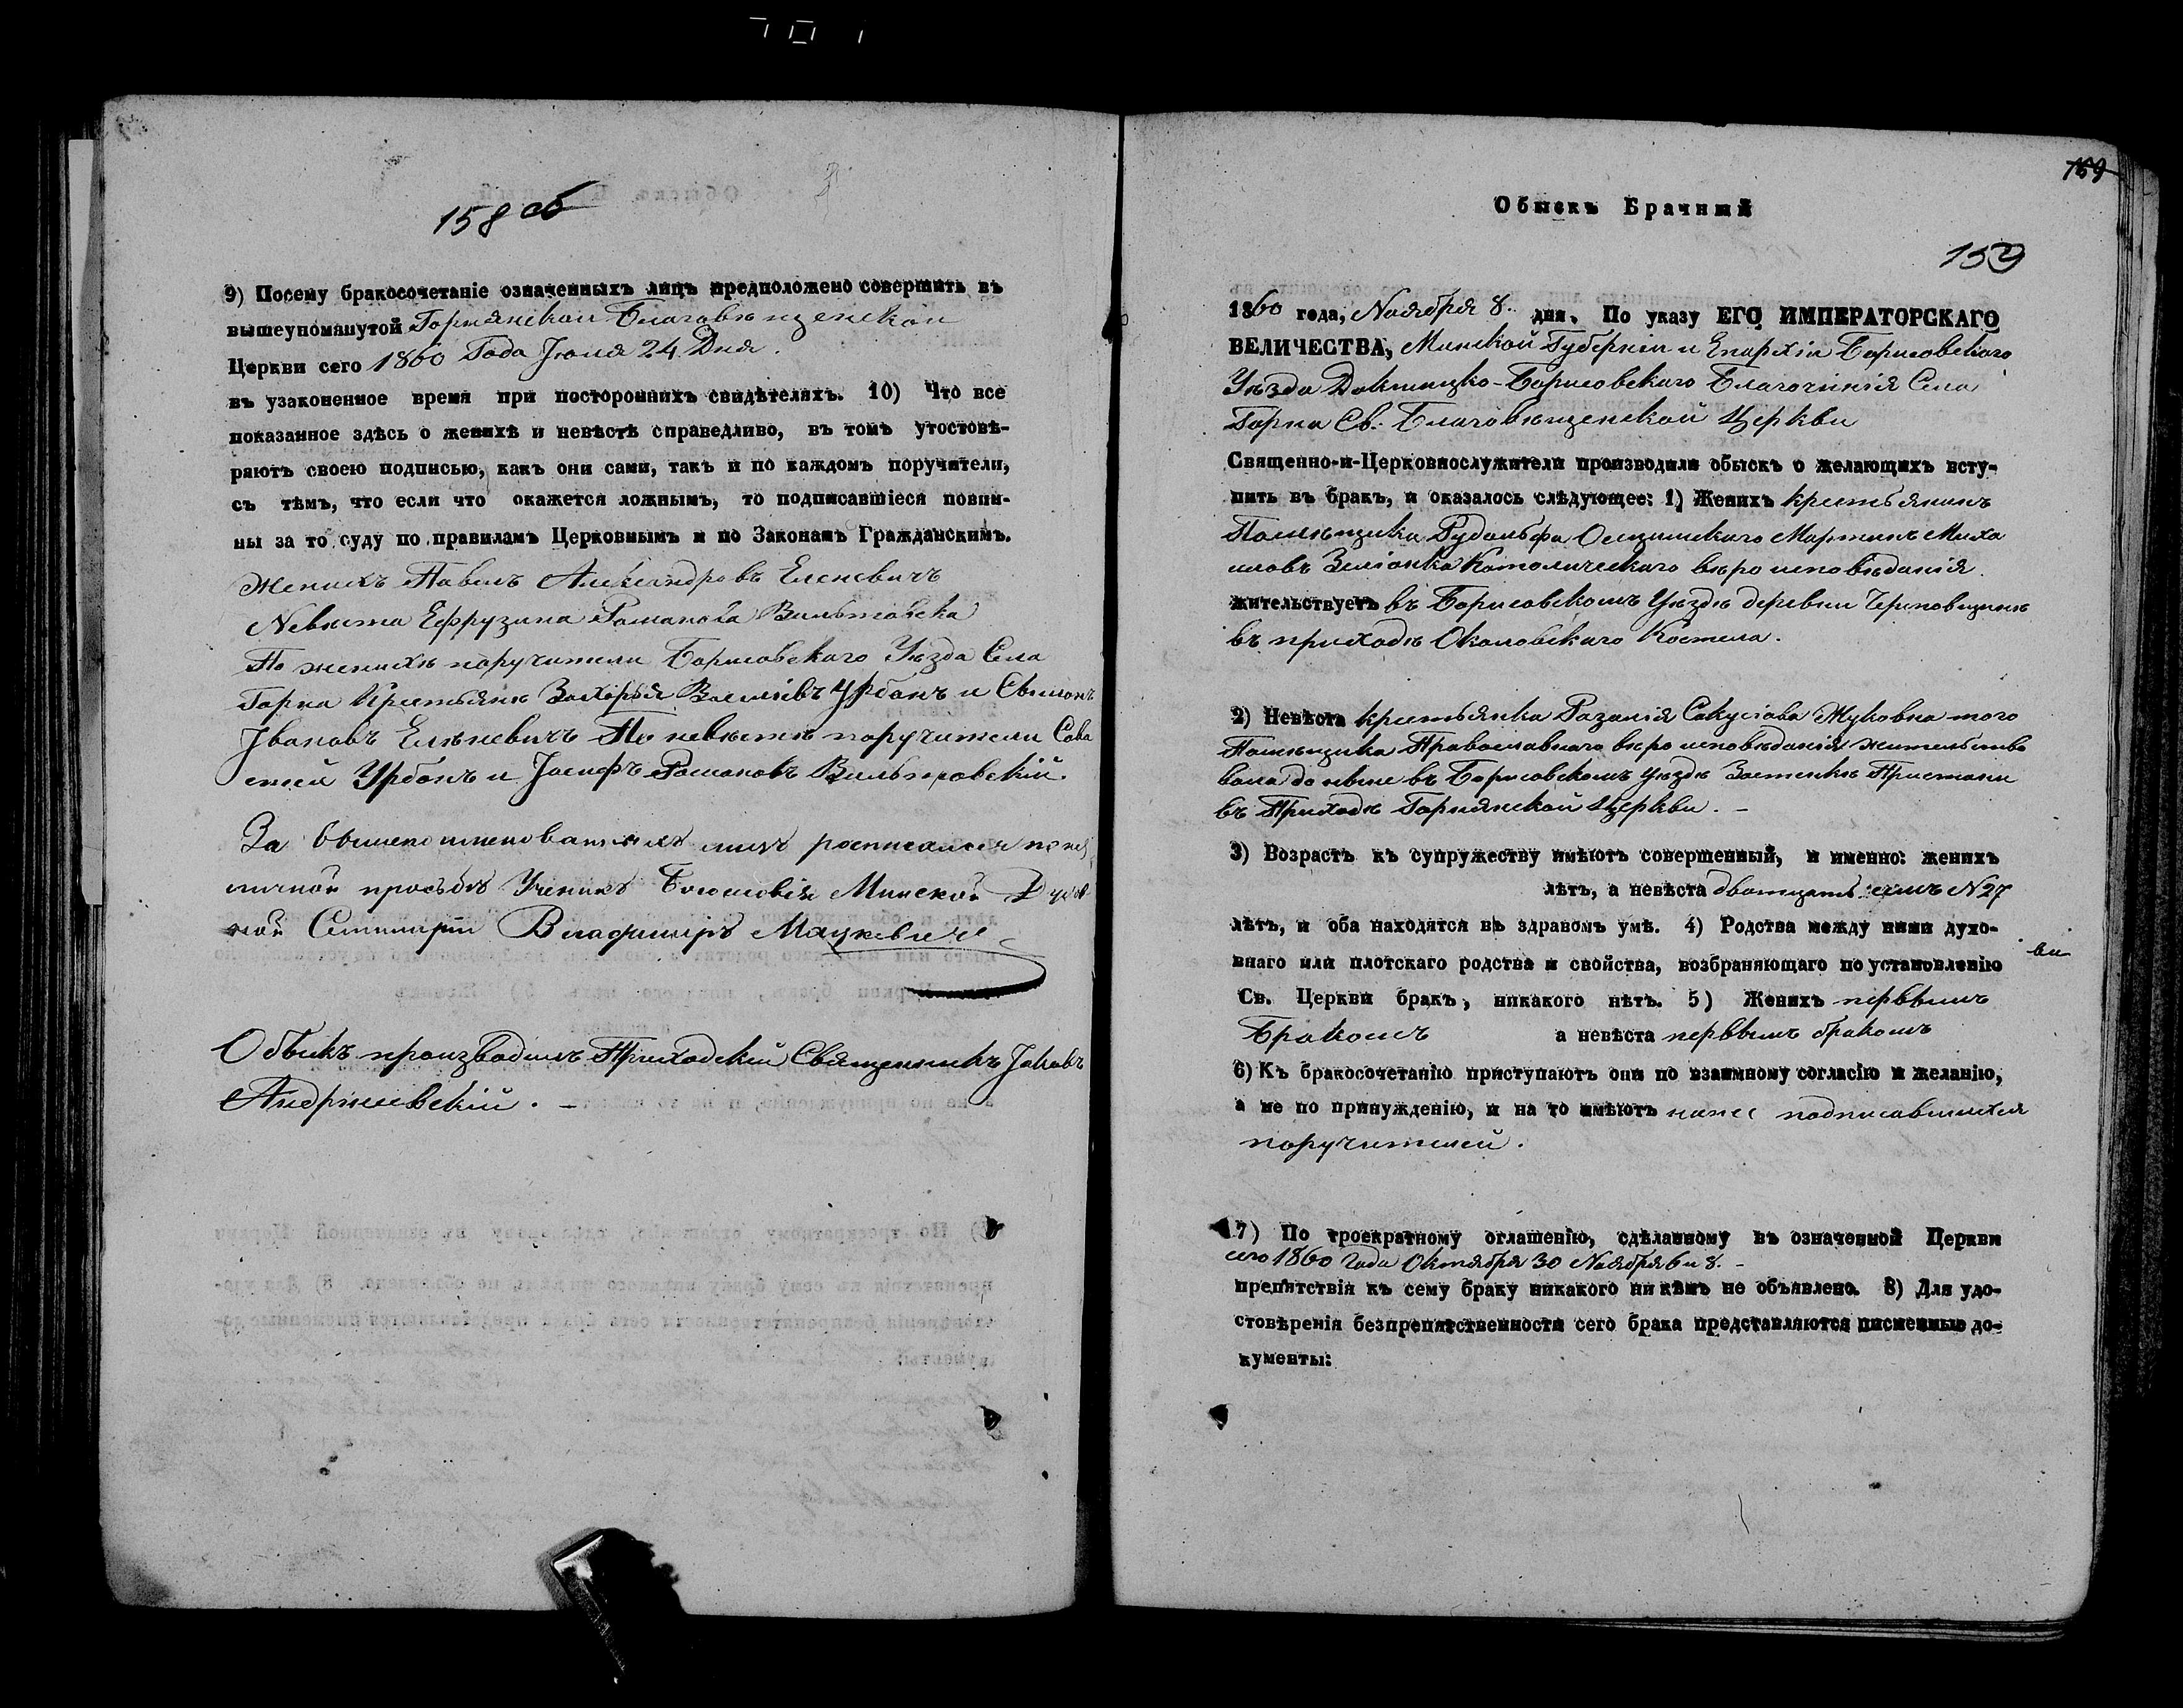 158 об
9) Посему бракосочетаніе означенныхъ лицъ предположено совершить въ
вышеупомянутой Горнянской Благовѣщенской
Церкви сего 1860 Года Іюля 24 Дня.
въ узаконенное время при постороннихъ свидѣтеляхъ. 10) Что все
показанное здѣсь о женихѣ и невѣстѣ справедливо, въ томъ утостовѣ-
ряютъ своею подписью, какъ они сами, такъ и по каждомъ поручители,
съ тѣмъ, что если что окажется ложнымъ, то подписавшіеся повин-
ны за то суду по правиламъ Церковнымъ и по Законамъ Гражданскимъ.
Женихъ Павелъ Александровъ Еленевичъ
Невѣста Ефрузина Романова
По женихѣ поручители Борисовскаго Уѣзда Села
Горна Крестьяне Захарья Урбанъ и
Івановъ Еленевичъ По невѣстѣ поручители Сава
стей Урбанъ и Іосифъ Романовъ
За вышепоименованныхъ лицъ росписался по ихъ
личной просьбѣ Ученикъ Богословія Минской Духов
ной Семинаріи Владиміръ Мацкевичъ
Обыскъ производилъ Приходскій Священникъ Іаковъ
Андріевскій. –
169
Обыскъ Брачный
159
1860 года, Ноября 8. дня. По указу ЕГО ИМПЕРАТОРСКАГО
ВЕЛИЧЕСТВА, Минской Губерніи и Епархіи Борисовскаго
Уѣзда Докшицко-Борисовскаго Благочинія Села
Горна Св. Благовѣщенской Церкви
Священно-и-Церковнослужители производили обыскъ о желающихъ всту-
пить въ бракъ, и оказалось слѣдующее: 1) Женихъ крестьянинъ
Помѣщика Рудольфа Мартинъ Миха
иловъ Зеліонка Католическаго вѣро исповѣданія.
жительствуетъ въ Борисовскомъ Уѣздѣ деревни
въ приходѣ Околовскаго Костела.
2) Невѣста крестьянка Розалія Жуковна того
Помѣщика Православнаго вѣро исповѣданія жительство
вала до ныне въ Борисовскомъ Уѣздѣ Застенкѣ Пристани
въ Приходѣ Горнянской Церкви. –
3) Возрастъ къ супружеству имѣютъ совершенный, и именно: женихъ
лѣтъ, а невѣста двадцать семь N 27
лѣтъ, и оба находятся въ здравомъ умѣ. 4) Родства между ними духо-
внаго или плотскаго родства и свойства, возбраняющаго по установленію
Св. Церкви бракъ, никакого нѣтъ. 5) Женихъ первымъ
Бракомъ а невѣста первымъ бракомъ
6) Къ бракосочетанію приступаютъ они по взаимному согласію и желанію,
а не по принужденію, и на то имѣютъ подписавшихся
поручителей.
7) По троекратному оглашенію, сдѣланному въ означенной Церкви
сего 1860 года Октября 30 Ноября 6 и 8. –
препятствія къ сему браку никакого ни кѣмъ не объявлено. 8) Для удо-
стовѣренія безпрепятственности сего брака представляются писменные до-
кументы: